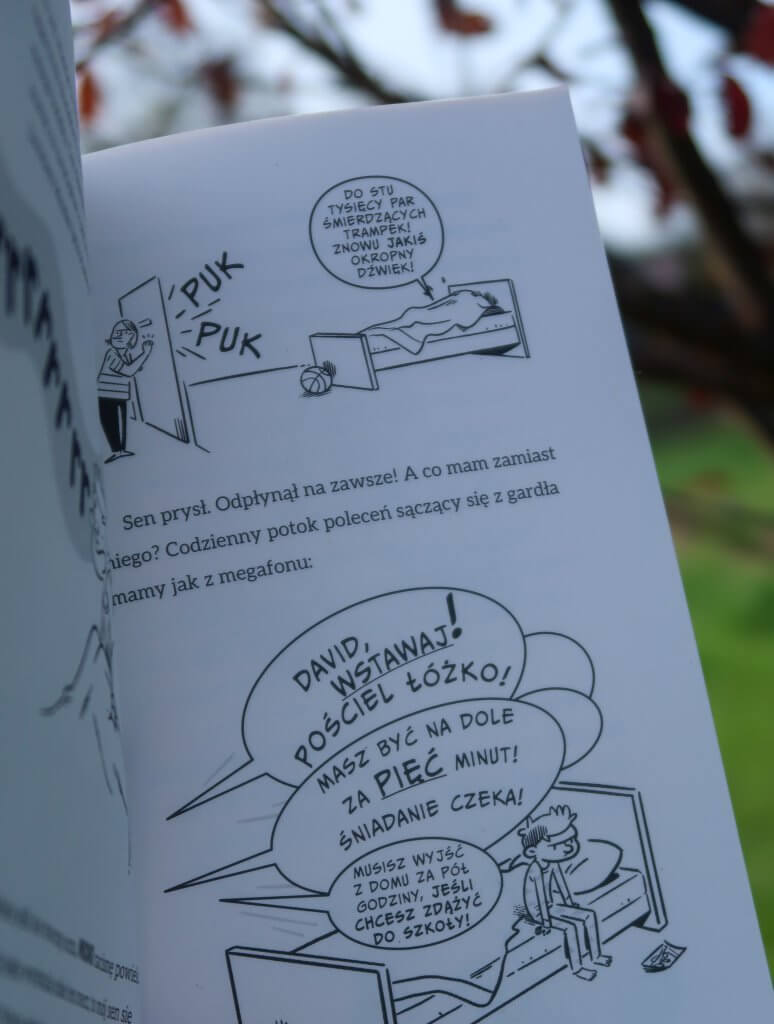 DO STU
TYSIĘCY PAR
ŚMIERDZĄCYCH
TRAMPEK!
ZNOWU JAKIŚ
OKROPNY
DŹWIĘK!
PUK
PUK
Sen prysł. Odpłynął na zawsze! A co mam zamiast
niego? Codzienny potok poleceń sączący się z gardła
mamy jak z megafonu:
DAVID,
WSTAWAJ!
POŚCIEL ŁÓŻKO!
MASZ BYĆ NA DOLE
ZA PIĘĆ MINUT!
ŚNIADANIE CZEKA!
MUSISZ WYJŚĆ
Z DOMU ZA PÓŁ
GODZINY, JEŚLI
CHCESZ ZDĄŻYĆ
DO SZKOŁY!